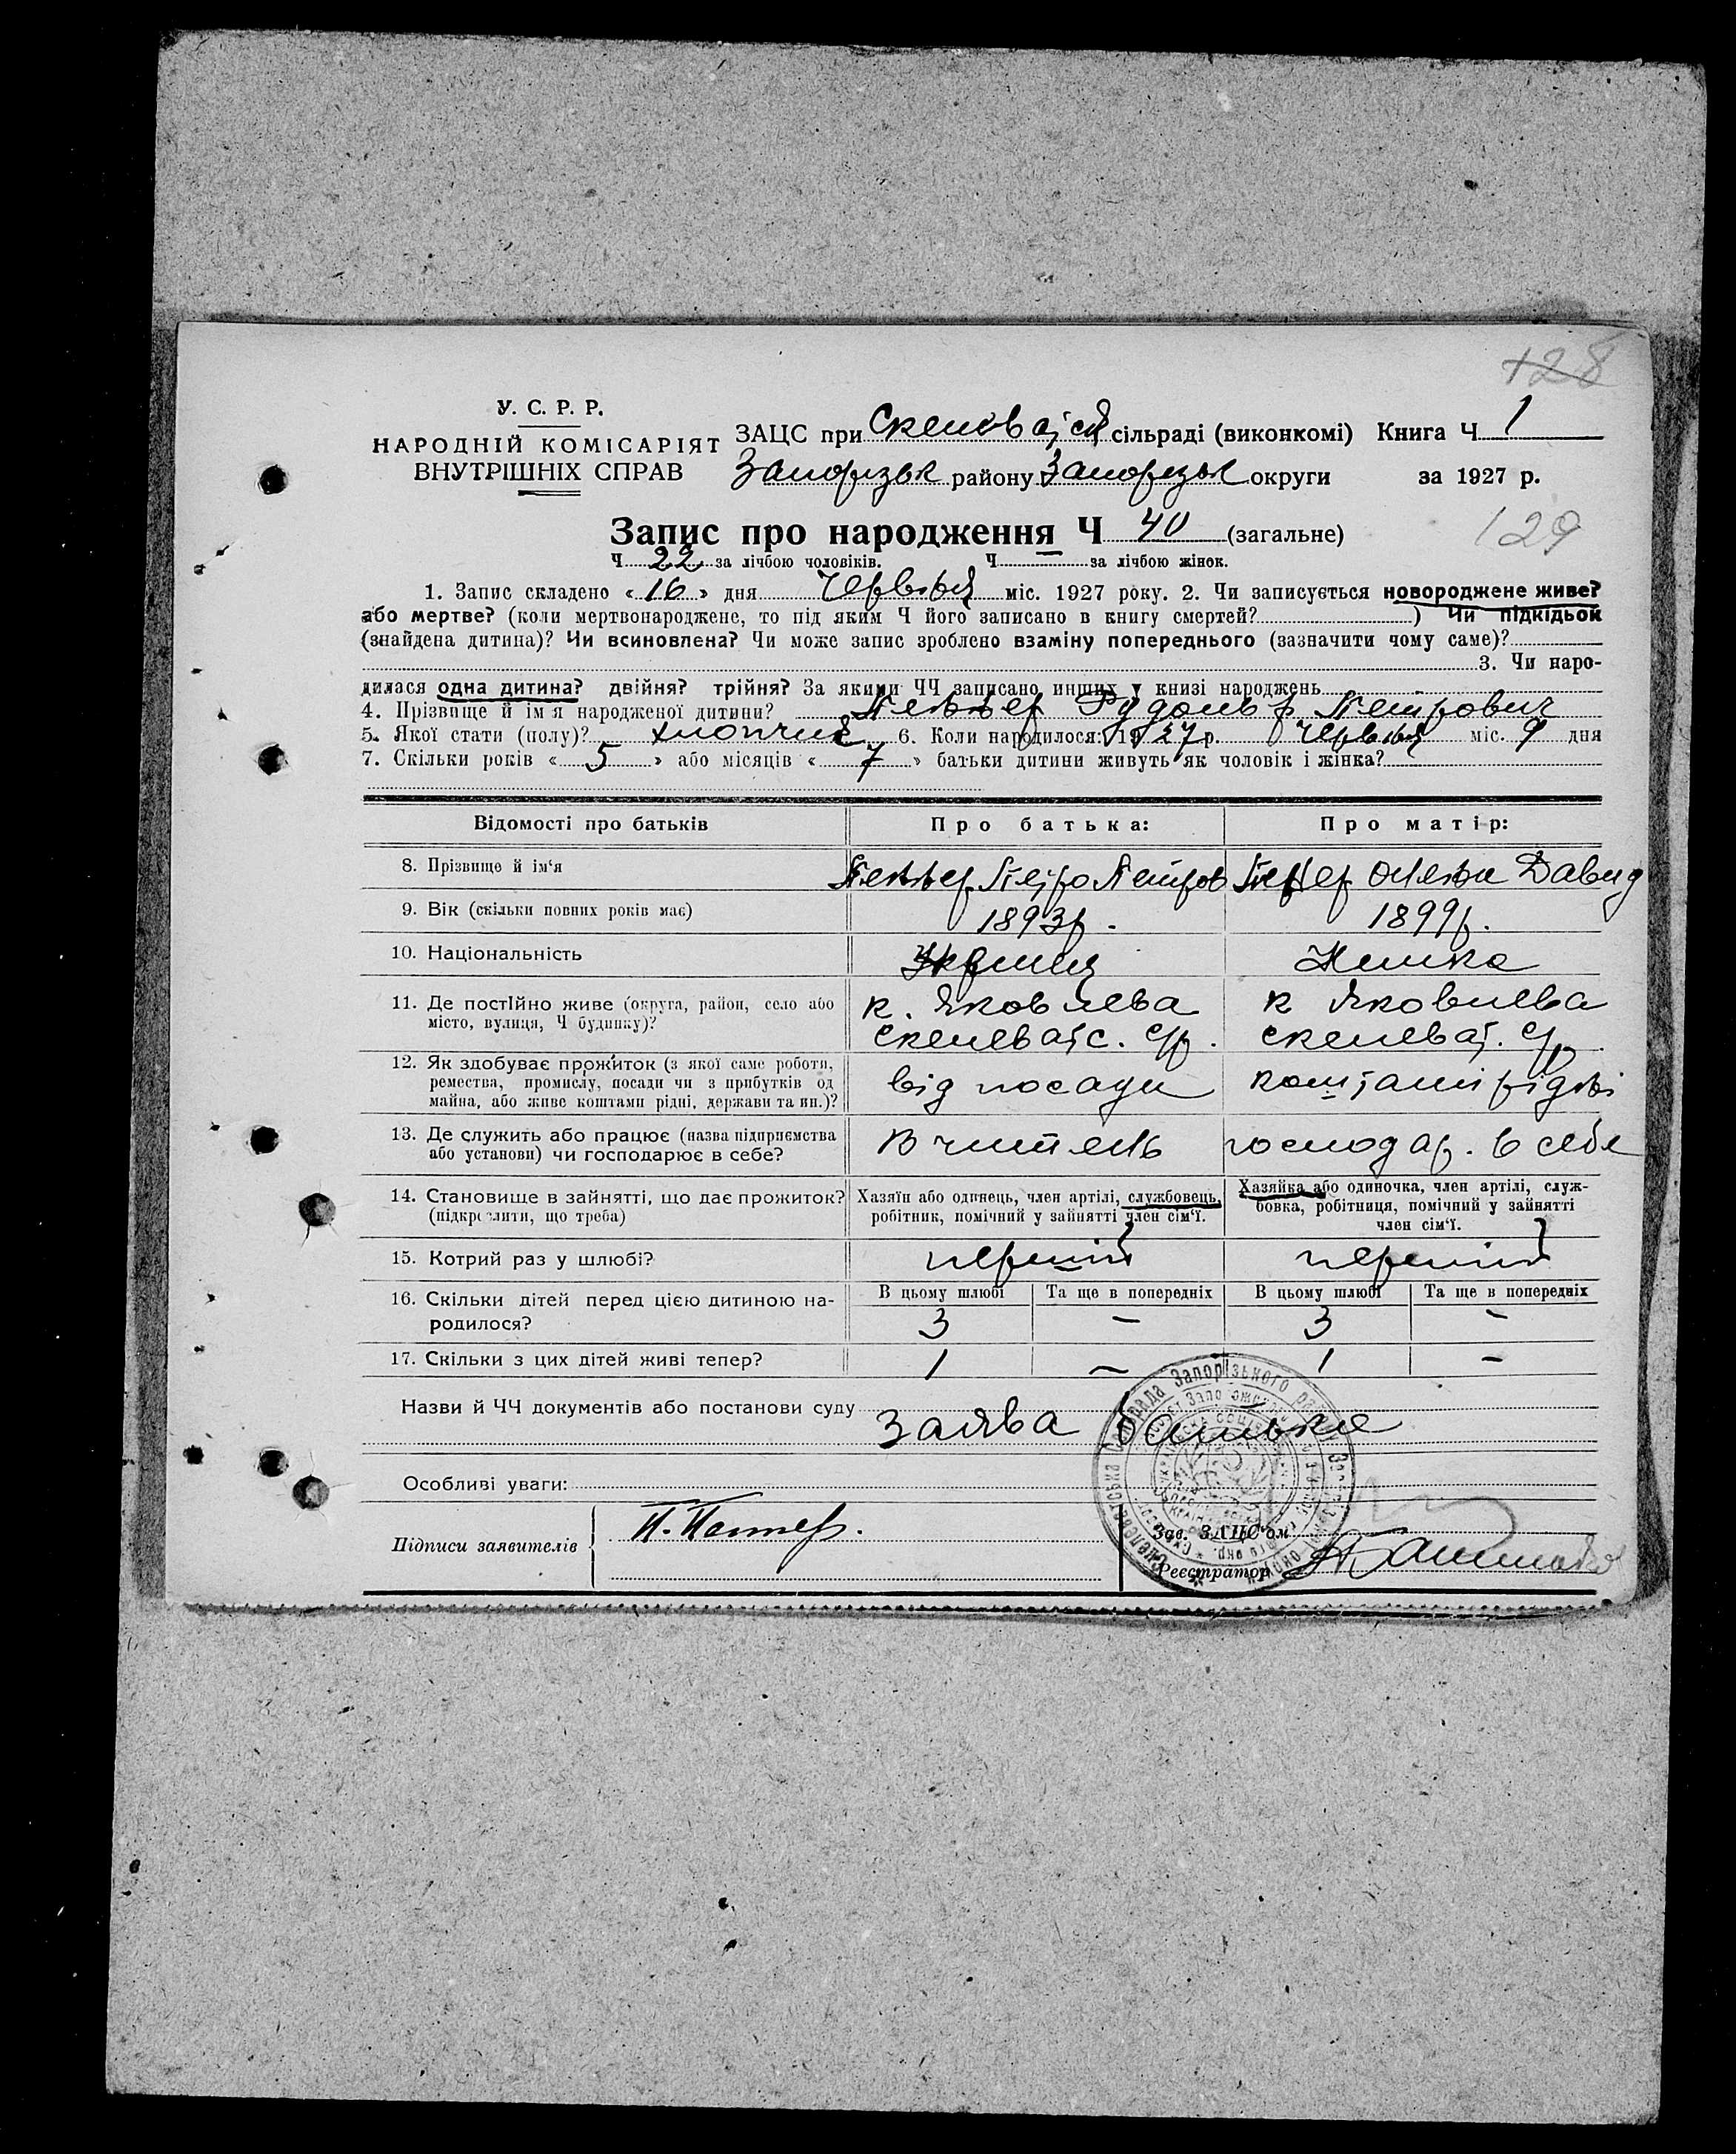 128
У. С. Р. Р.
НАРОДНІЙ КОМІСАРІЯТ
ВНУТРІШНІХ СПРАВ
ЗАЦС при сільраді (виконкомі) Книга Ч 1
Запорізьк району Запорізьк округи за 1927 р.
Запис про народження Ч 40 (загальне)
129
Ч 22 за лічбою чоловіків. Ч за лічбою жінок.
1. Запис складено «16» дня Червня міс. 1927 року. 2. Чи записується новороджене живе?
або мертве? (коли мертвонароджене, то під яким Ч його записано в книгу смертей? ) Чи підкідьок
(знайдена дитина)? Чи всиновлена? Чи може запис зроблено взаміну попереднього (зазначити чому саме)?
3. Чи наро-
дилася одна дитина? двійня? трійня? За якими ЧЧ записано инших у книзі народжень
4. Прізвище й ім'я народженої дитини? Рудольф Петрович
5. Якої стати (полу)? хлопчик 6. Коли народилося: 1927 р. Червня міс. 9 дня
7. Скільки років «5» або місяців «7» батьки дитини живуть як чоловік і жінка?
Відомості про батьків Про батька: Про матір:
8. Прізвище й ім'я Петро Петров Давид
9. Вік (скільки повних років має) 1893р. 1899р.
10. Національність Німка
11. Де постійно живе (округа, район, село або к. Яковлева к Яковлева
місто, вулиця, Ч будинку)? Скелеватс. с/р. Скелеват. с/р
12. Як здобуває прожиток (з якої саме роботи,
ремества, промислу, посади чи з прибутків од від посади коштами рідні
майна, або живе коштами рідні, держави та ин.)?
13. Де служить або працює (назва підприємства Вчитель господар. в себе
або установи) чи господарює в себе?
14. Становище в зайнятті, що дає прожиток? Хазяїн або одинець, член артілі, службовець, Хазяйка або одиночка, член артілі, служ-
(підкреслити, що треба) робітник, помічний у зайнятті член сім'ї. бовка, робітниця, помічний у зайнятті
член сім'ї.
15. Котрий раз у шлюбі? перший перший
16. Скільки дітей перед цією дитиною на- В цьому шлюбі Та ще в попередніх В цьому шлюбі Та ще в попередніх
родилося? 3 – 3 –
17. Скільки з цих дітей живі тепер? 1 – 1 –
Назви й ЧЧ документів або постанови суду
заява батька
Особливі уваги:
Підписи заявителів
Зав. ЗАЦС'ом
Реєстратор